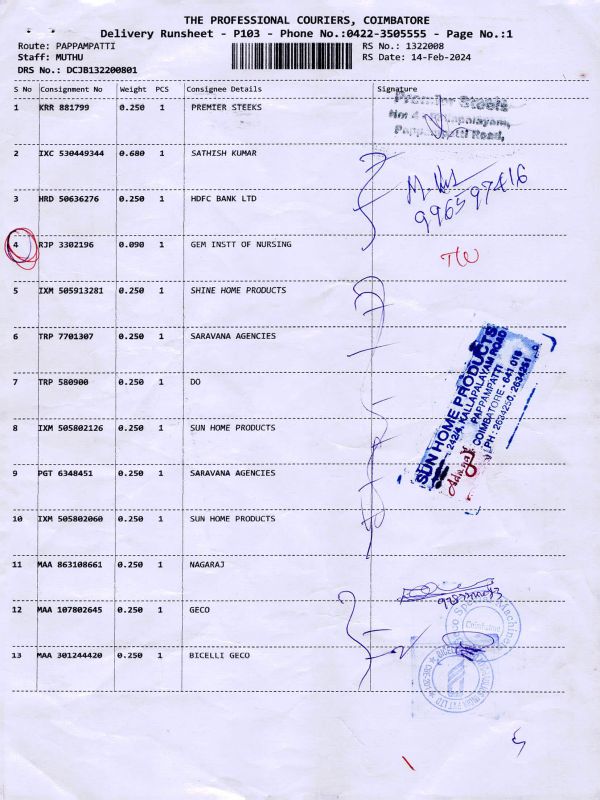 THE PROFESSIONAL COURIERS, COIMBATORE
Delivery Runsheet - P103 - Phone No.:0422-3505555 - Page No.:1
Route: PAPPAMPATTI RS No.: 1322008
Staff: MUTHU RS Date: 14-Feb-2024
DRS No.: DCJB132200801
S No Consignment No Weight PCS Consignee Details Signature
1 KRR 881799 0.250 1 PREMIER STEEKS
Premier Steels
Road,
2 IXC 530449344 0.680 1 SATHISH KUMAR
3 HRD 50636276 0.250 1 HDFC BANK LTD
996597416
4 RJP 3302196 0.090 1 GEM INSTT OF NURSING
5 IXM 505913281 0.250 1 SHINE HOME PRODUCTS
6 TRP 7701307 0.250 1 SARAVANA AGENCIES
7 TRP 580900 0.250 1 DO
8 IXM 505802126 0.250 1 SUN HOME PRODUCTS
9 PGT 6348451 0.250 1 SARAVANA AGENCIES
10 IXM 505802060 0.250 1 SUN HOME PRODUCTS
SUN HOME PRODUCTS
242/4, KALLAPALAYAM ROAD
PAPPAMPATTI
COIMBATORE - 641 016
PH : 2634250, 2634251
11 MAA 863108661 0.250 1 NAGARAJ
12 MAA 107802645 0.250 1 GECO
Coimbatore
13 MAA 301244420 0.250 1 BICELLI GECO